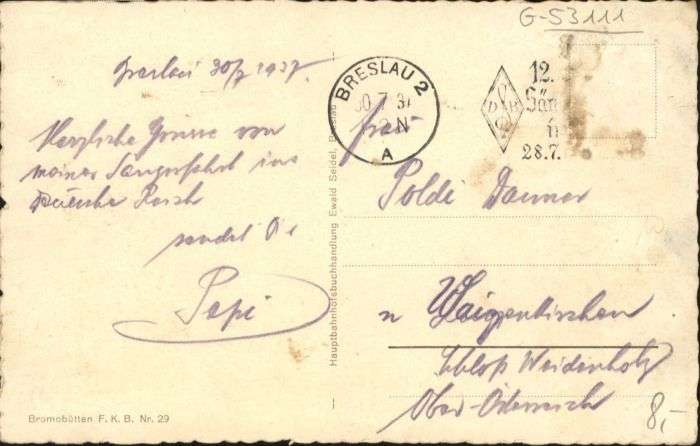 G-53111
Breslau 30/7 1937
Herzliche Grüsse von
meiner Sängerfahrt ins
Deutsche Reich
sendet Die
Papi
BRESLAU 2
30.7.37
N
A
12.
Sän
28.7.
Frau
Poldi
n Waizenkirchen
Schloß Weidenholz
Ober-Österreich
Hauptbahnhofsbuchhandlung Ewald Seidel, Breslau
Bromobütten F. K. B. Nr. 29
8,-